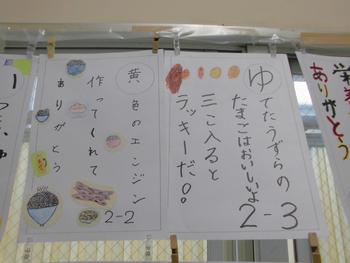 ゆでたうずらの
たまごはおいしいよ
三こ入ると
ラッキーだ！。
2-3
黄色のエンジン
作ってくれて
ありがとう
2-2
ありがとう